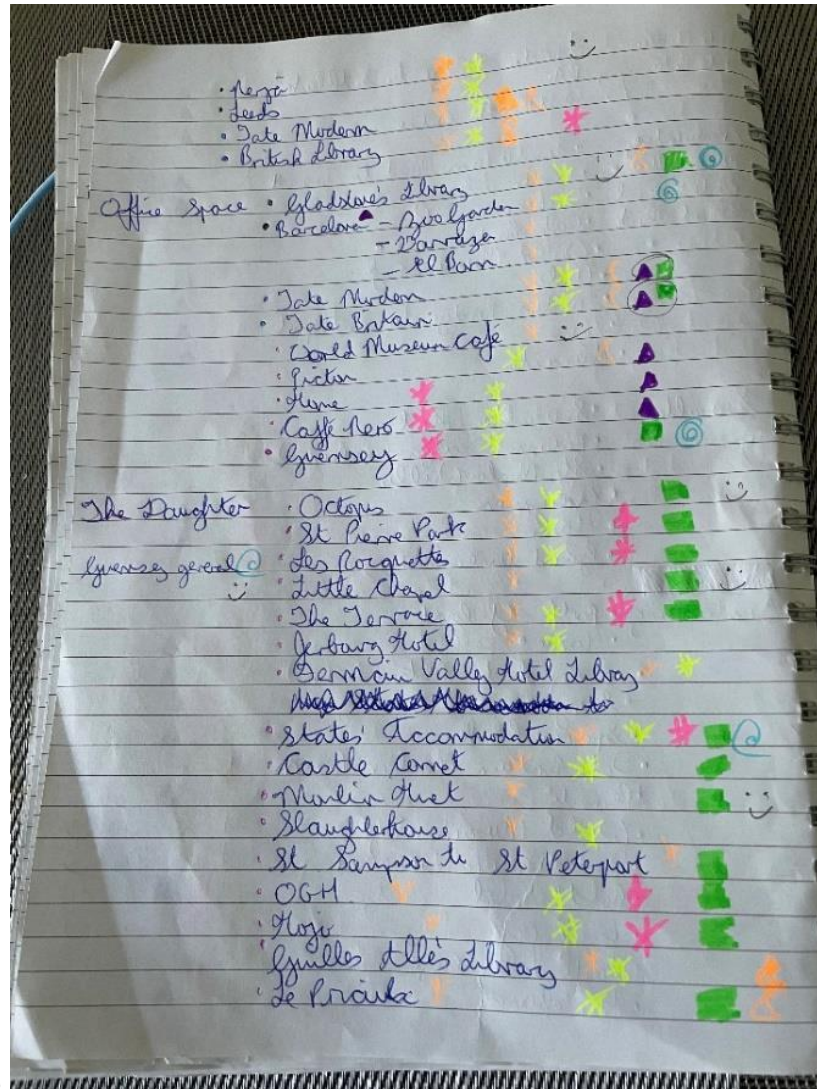 · Nerja
· Leeds
· Tate Modern
· British Library
Office Space · Gladstone's Library
· Barcelona - Zoo Garden
-
- El Born
· Tate Modern
· Tate Britain
· World Museum Café
· Picton
· Home
· Caffè Nero
· Guernsey
The Daughter · Octopus
· St Pierre Park
Guernsey general · Les Rocquettes
· Little Chapel
· The Terrace
· Jerbourg Hotel
· Fermain Valley Hotel Library
· States' Accommodation
· Castle Cornet
· Moulin Huet
· Slaughterhouse
· St Sampson to St Peterport
· OGH
· Mojo
· Guilles Allès Library
· Le Priaulx